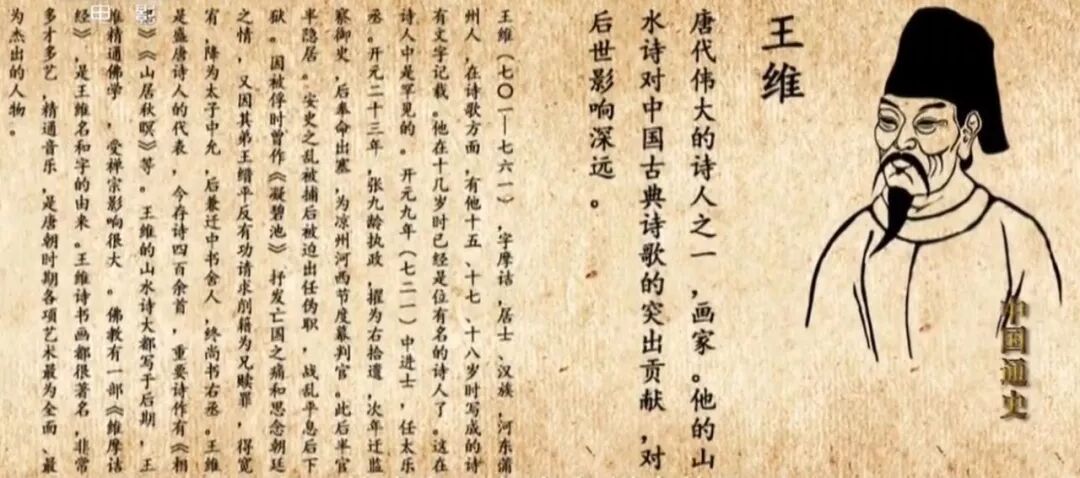 中国通史
王维
唐代伟大的诗人之一，画家。他的山
水诗对中国古典诗歌的突出贡献，对
后世影响深远。
王维（七〇一—七六一），字摩诘，居士、汉族，河东蒲
州人，在诗歌方面，有他十五、十七、十八岁时写成的诗
有文字记载。他在十几岁时已经是位有名的诗人了。这在
诗人中是罕见的。开元九年（七二一）中进士，任太乐
丞。开元二十三年，张九龄执政，擢为右拾遗，次年迁监
察御史，后奉命出塞，为凉州河西节度幕判官。此后半官
半隐居。安史之乱被捕后被迫出任伪职，战乱平息后下
狱。因被俘时曾作《凝碧池》抒发亡国之痛和思念朝廷
之情，又因其弟王缙平反有功请求削籍为兄赎罪，得宽
宥，降为太子中允，后兼迁中书舍人，终尚书右丞。王维
是盛唐诗人的代表，今存诗四百余首，重要诗作有《相
思》《山居秋暝》等。王维的山水诗大都写于后期，王
维精通佛学，受禅宗影响很大。佛教有一部《维摩诘
经》，是王维名和字的由来。王维诗书画都很著名，非常
多才多艺，精通音乐，是唐朝时期各项艺术最为全面、最
为杰出的人物。